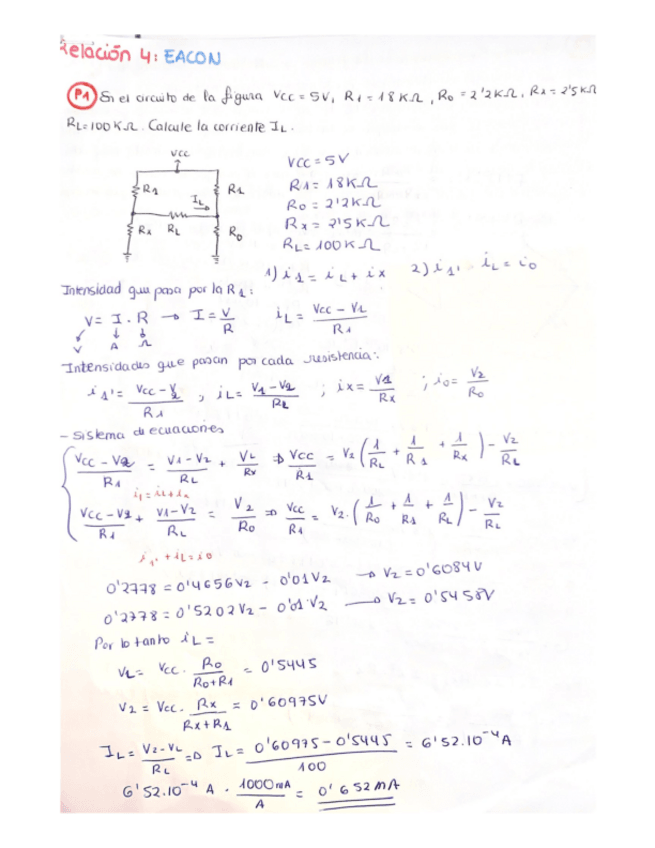 Relación 4: EACON
P1 En el circuito de la figura Vcc = 5V, R1 = 18KΩ, R0 = 2'2KΩ, RX = 2'5KΩ
RL=100KΩ. Calcule la corriente IL.
Vcc
R1 R1
IL
RX RL R0
Vcc = 5V
R1 = 18KΩ
R0 = 2'2KΩ
Rx = 2'5KΩ
RL = 100KΩ
1) i1 = iL + ix 2) i1' + iL = i0
Intensidad que pasa por la R1:
V = I . R → I = V/R iL = (Vcc - V1)/R1
V A Ω
Intensidades que pasan por cada resistencia:
i1' = (Vcc - V2)/R1 , iL = (V1 - V2)/RL ; ix = V1/Rx ; i0 = V2/R0
- Sistema de ecuaciones
(Vcc - V2)/R1 = (V1 - V2)/RL + VL/Rx ⇒ Vcc/R1 = V2 (1/RL + 1/R1 + 1/Rx) - V2/RL
i1 = iL + ix
(Vcc - V2)/R1 + (V1 - V2)/RL = V2/R0 ⇒ Vcc/R1 = V2 . (1/R0 + 1/R1 + 1/RL) - V2/RL
i1' + iL = i0
0'2778 = 0'4656V2 - 0'01V2 → V2 = 0'6084V
0'2778 = 0'5202V2 - 0'01V2 → V2 = 0'5458V
Por lo tanto iL =
VL = Vcc . R0/(R0+R1) = 0'5445
V2 = Vcc . Rx/(Rx+R1) = 0'60975V
IL = (V2 - VL)/RL ⇒ IL = (0'60975 - 0'5445)/100 = 6'52.10⁻⁴A
6'52.10⁻⁴ A . 1000mA/A = 0'652mA